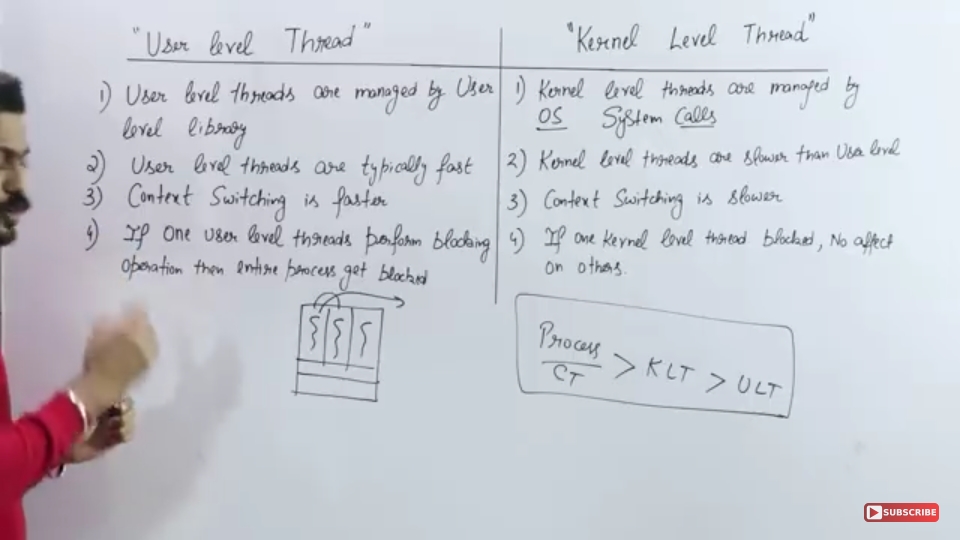 "User level Thread"
1) User level threads are managed by User
level library
2) User level threads are typically fast
3) Context Switching is faster
4) If One user level threads perform blocking
operation then entire process get blocked
"Kernel Level Thread"
1) Kernel level threads are managed by
OS System Calls
2) Kernel level threads are slower than User level
3) Context Switching is slower
4) If one Kernel level thread blocked, No affect
on others.
Process
CT
> KLT > ULT
SUBSCRIBE